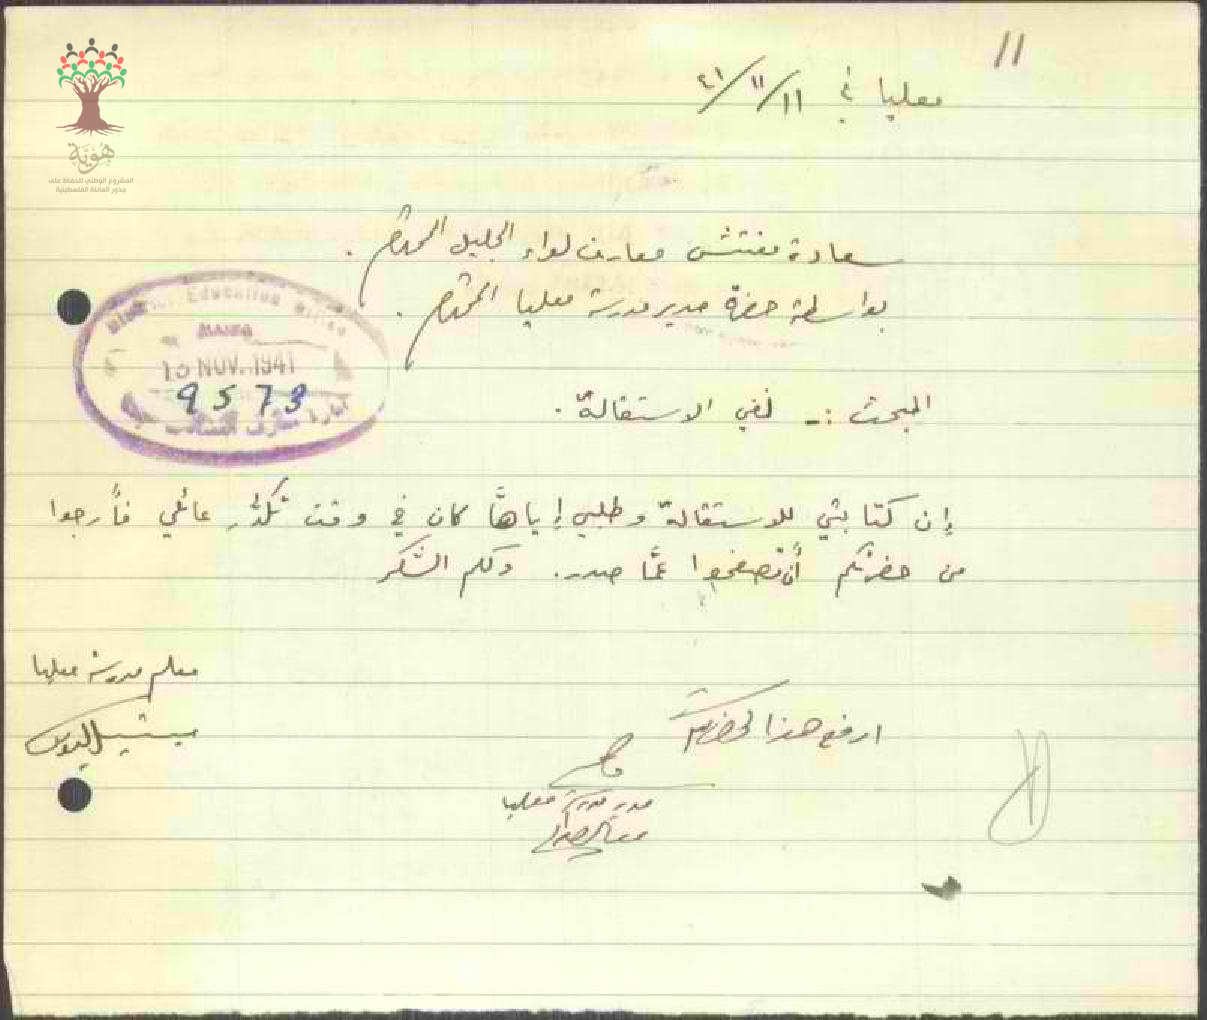 11
معليا في ١١/١١/٤١
هوية
المشروع الوطني للحفاظ على
جذور العائلة الفلسطينية
سعادة مفتش معارف لواء الجليل المحترم .
بواسطة حضرة مدير مدرسة معليا المحترم .
District Education Office
13 NOV. 1941
9573
المبحث :- لغي الاستقالة .
إن كتابتي للاستقالة وطلبي إياها كان في وقت تكدُّر عائلي فأرجوا
من حضرتكم أن تصفحوا عمّا صدر. ولكم الشكر
معلم مدرسة معليا
ارفع هذا لحضرتكم
مدير مدرسة معليا